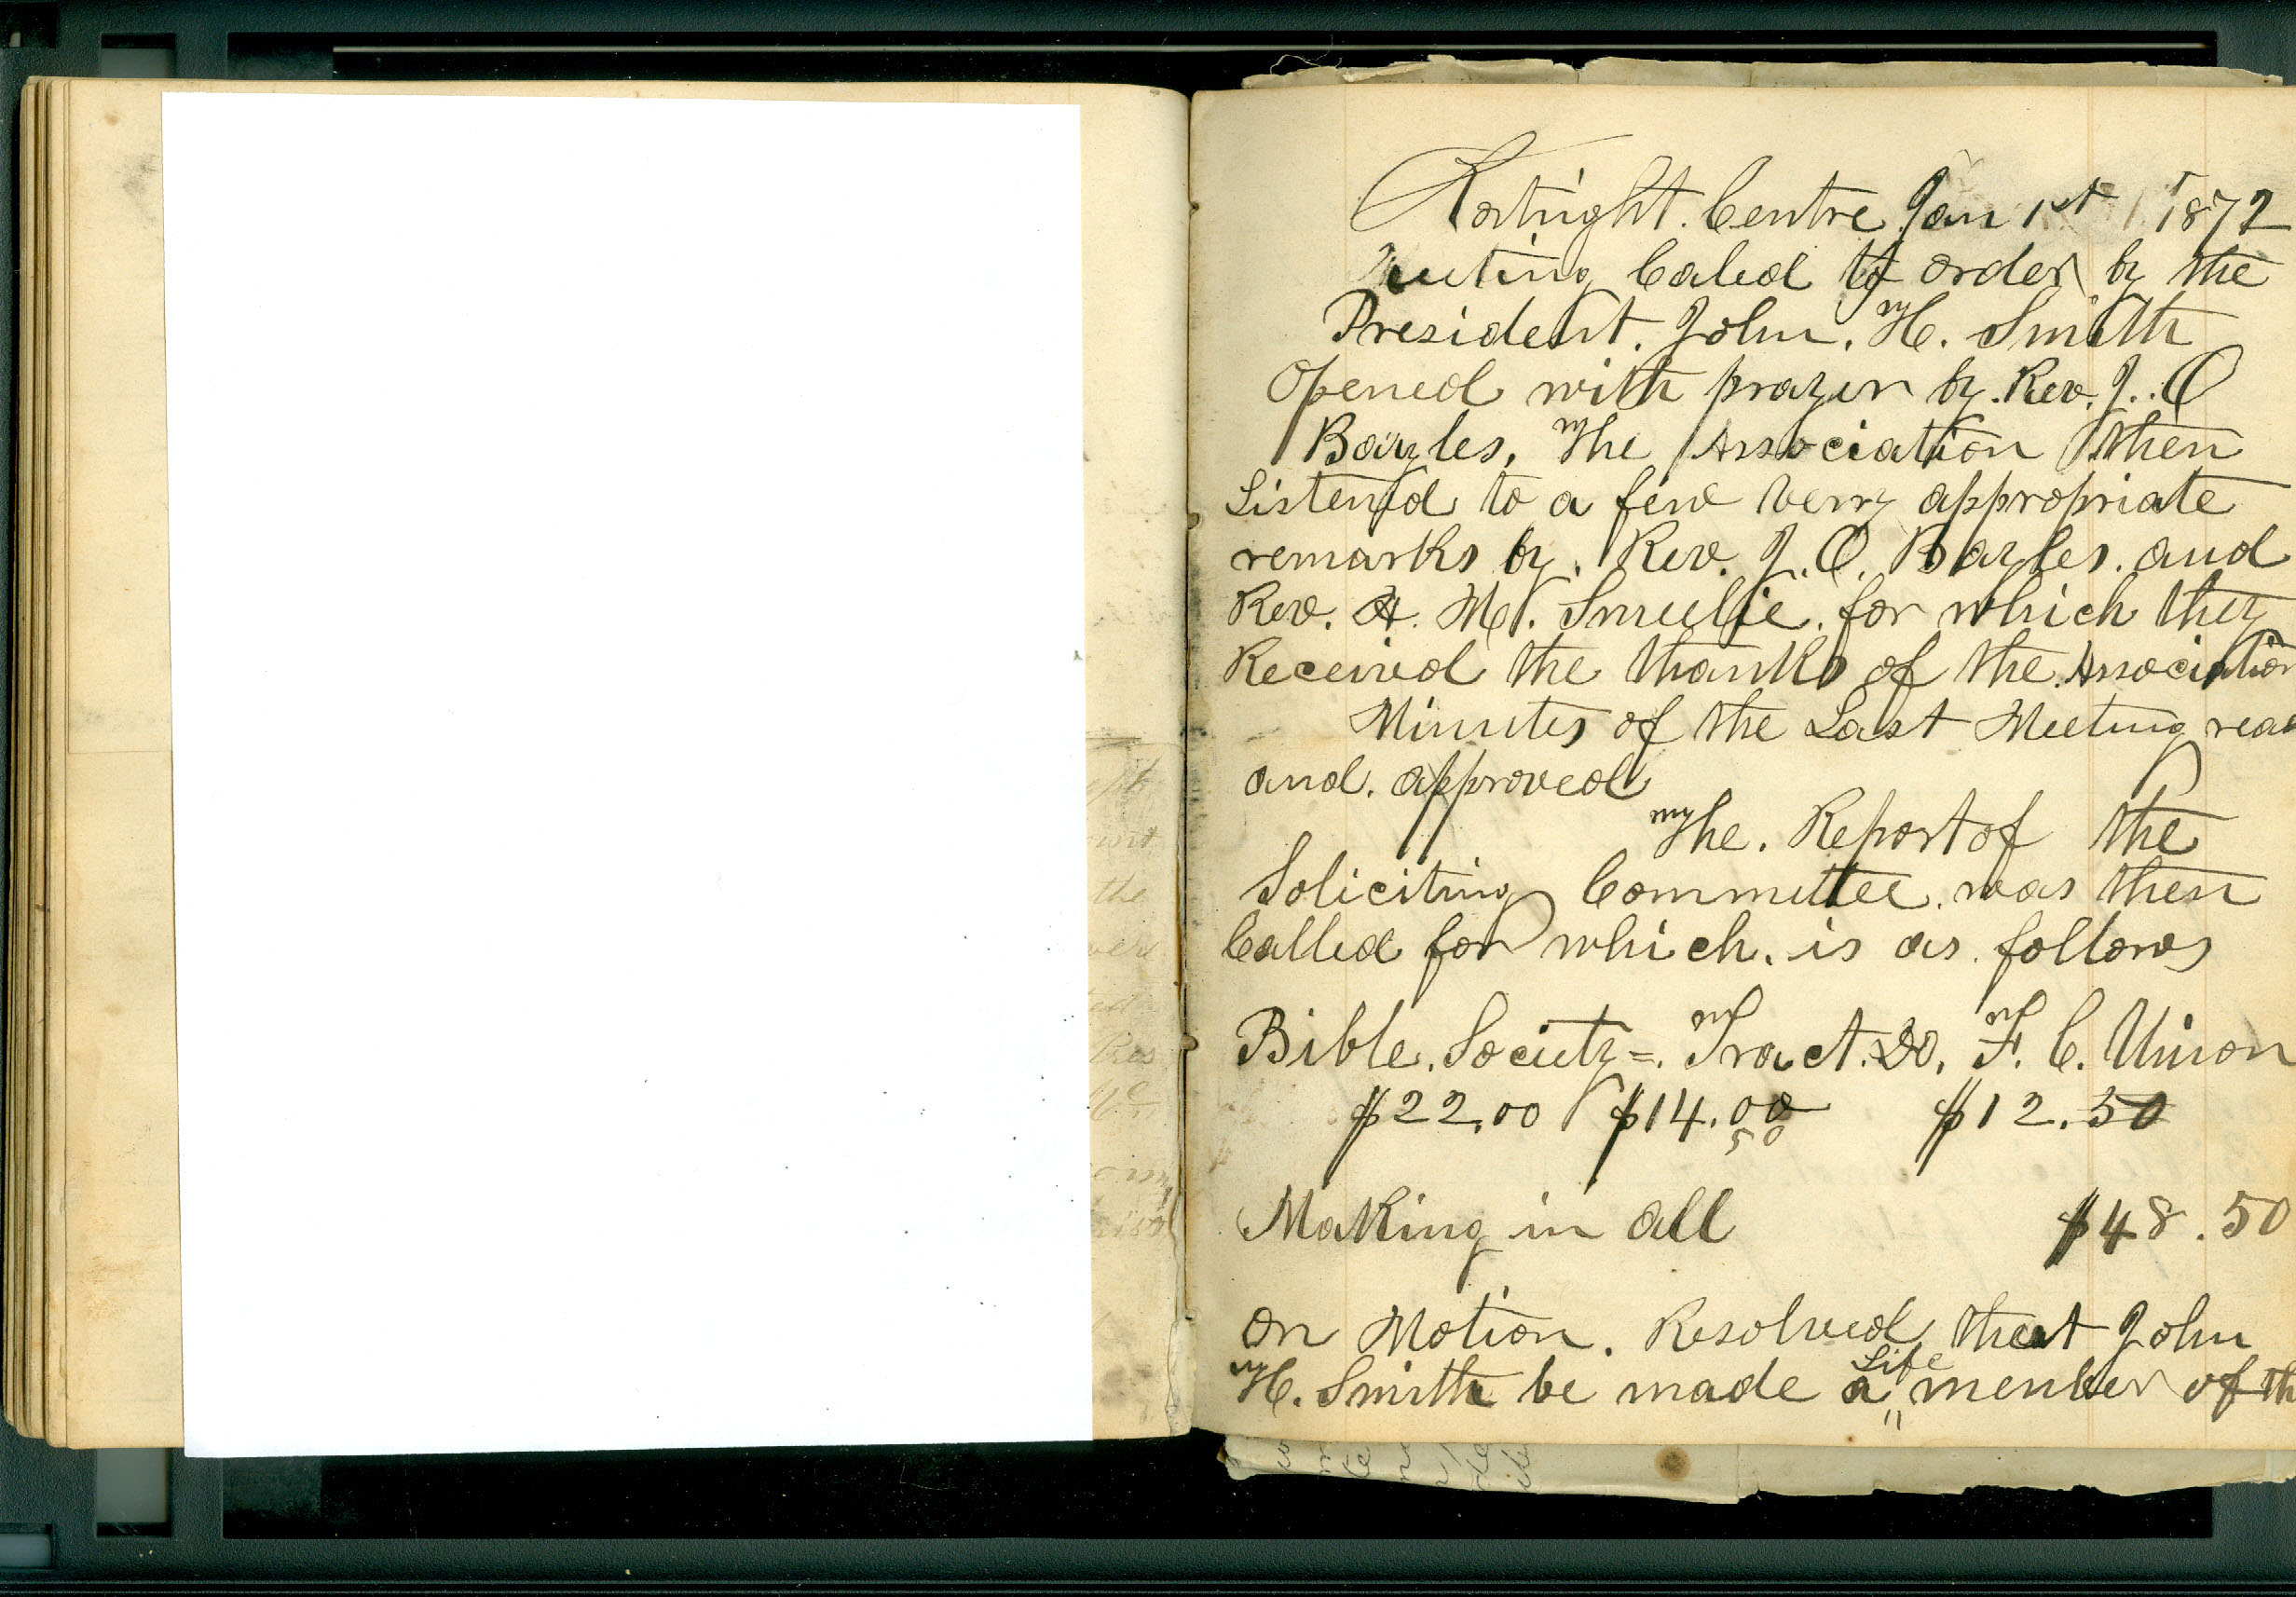 Kortright. Centre Jan 1st 1872
Meeting Caled to order by the
President. John. H. Smith
Opened with prayer by. Rev. J. O
Bayles. The Association then
Listend to a few very appropriate
remarks by. Rev. J. O. Bayles. and
Rev. M. Smeelie. for which they
Received the thanks of the Association
Minutes of the Last Meeting read
and. approved
The. Report of the
Soliciting Committee. was then
Called for which. is as follows
Bible. Society =. Tract. Do. F. C. Union
$22.00 $14.00 $12.50
50
Making in all $48.50
On Motion. Resolved that John
Life
H. Smith be made a member of th